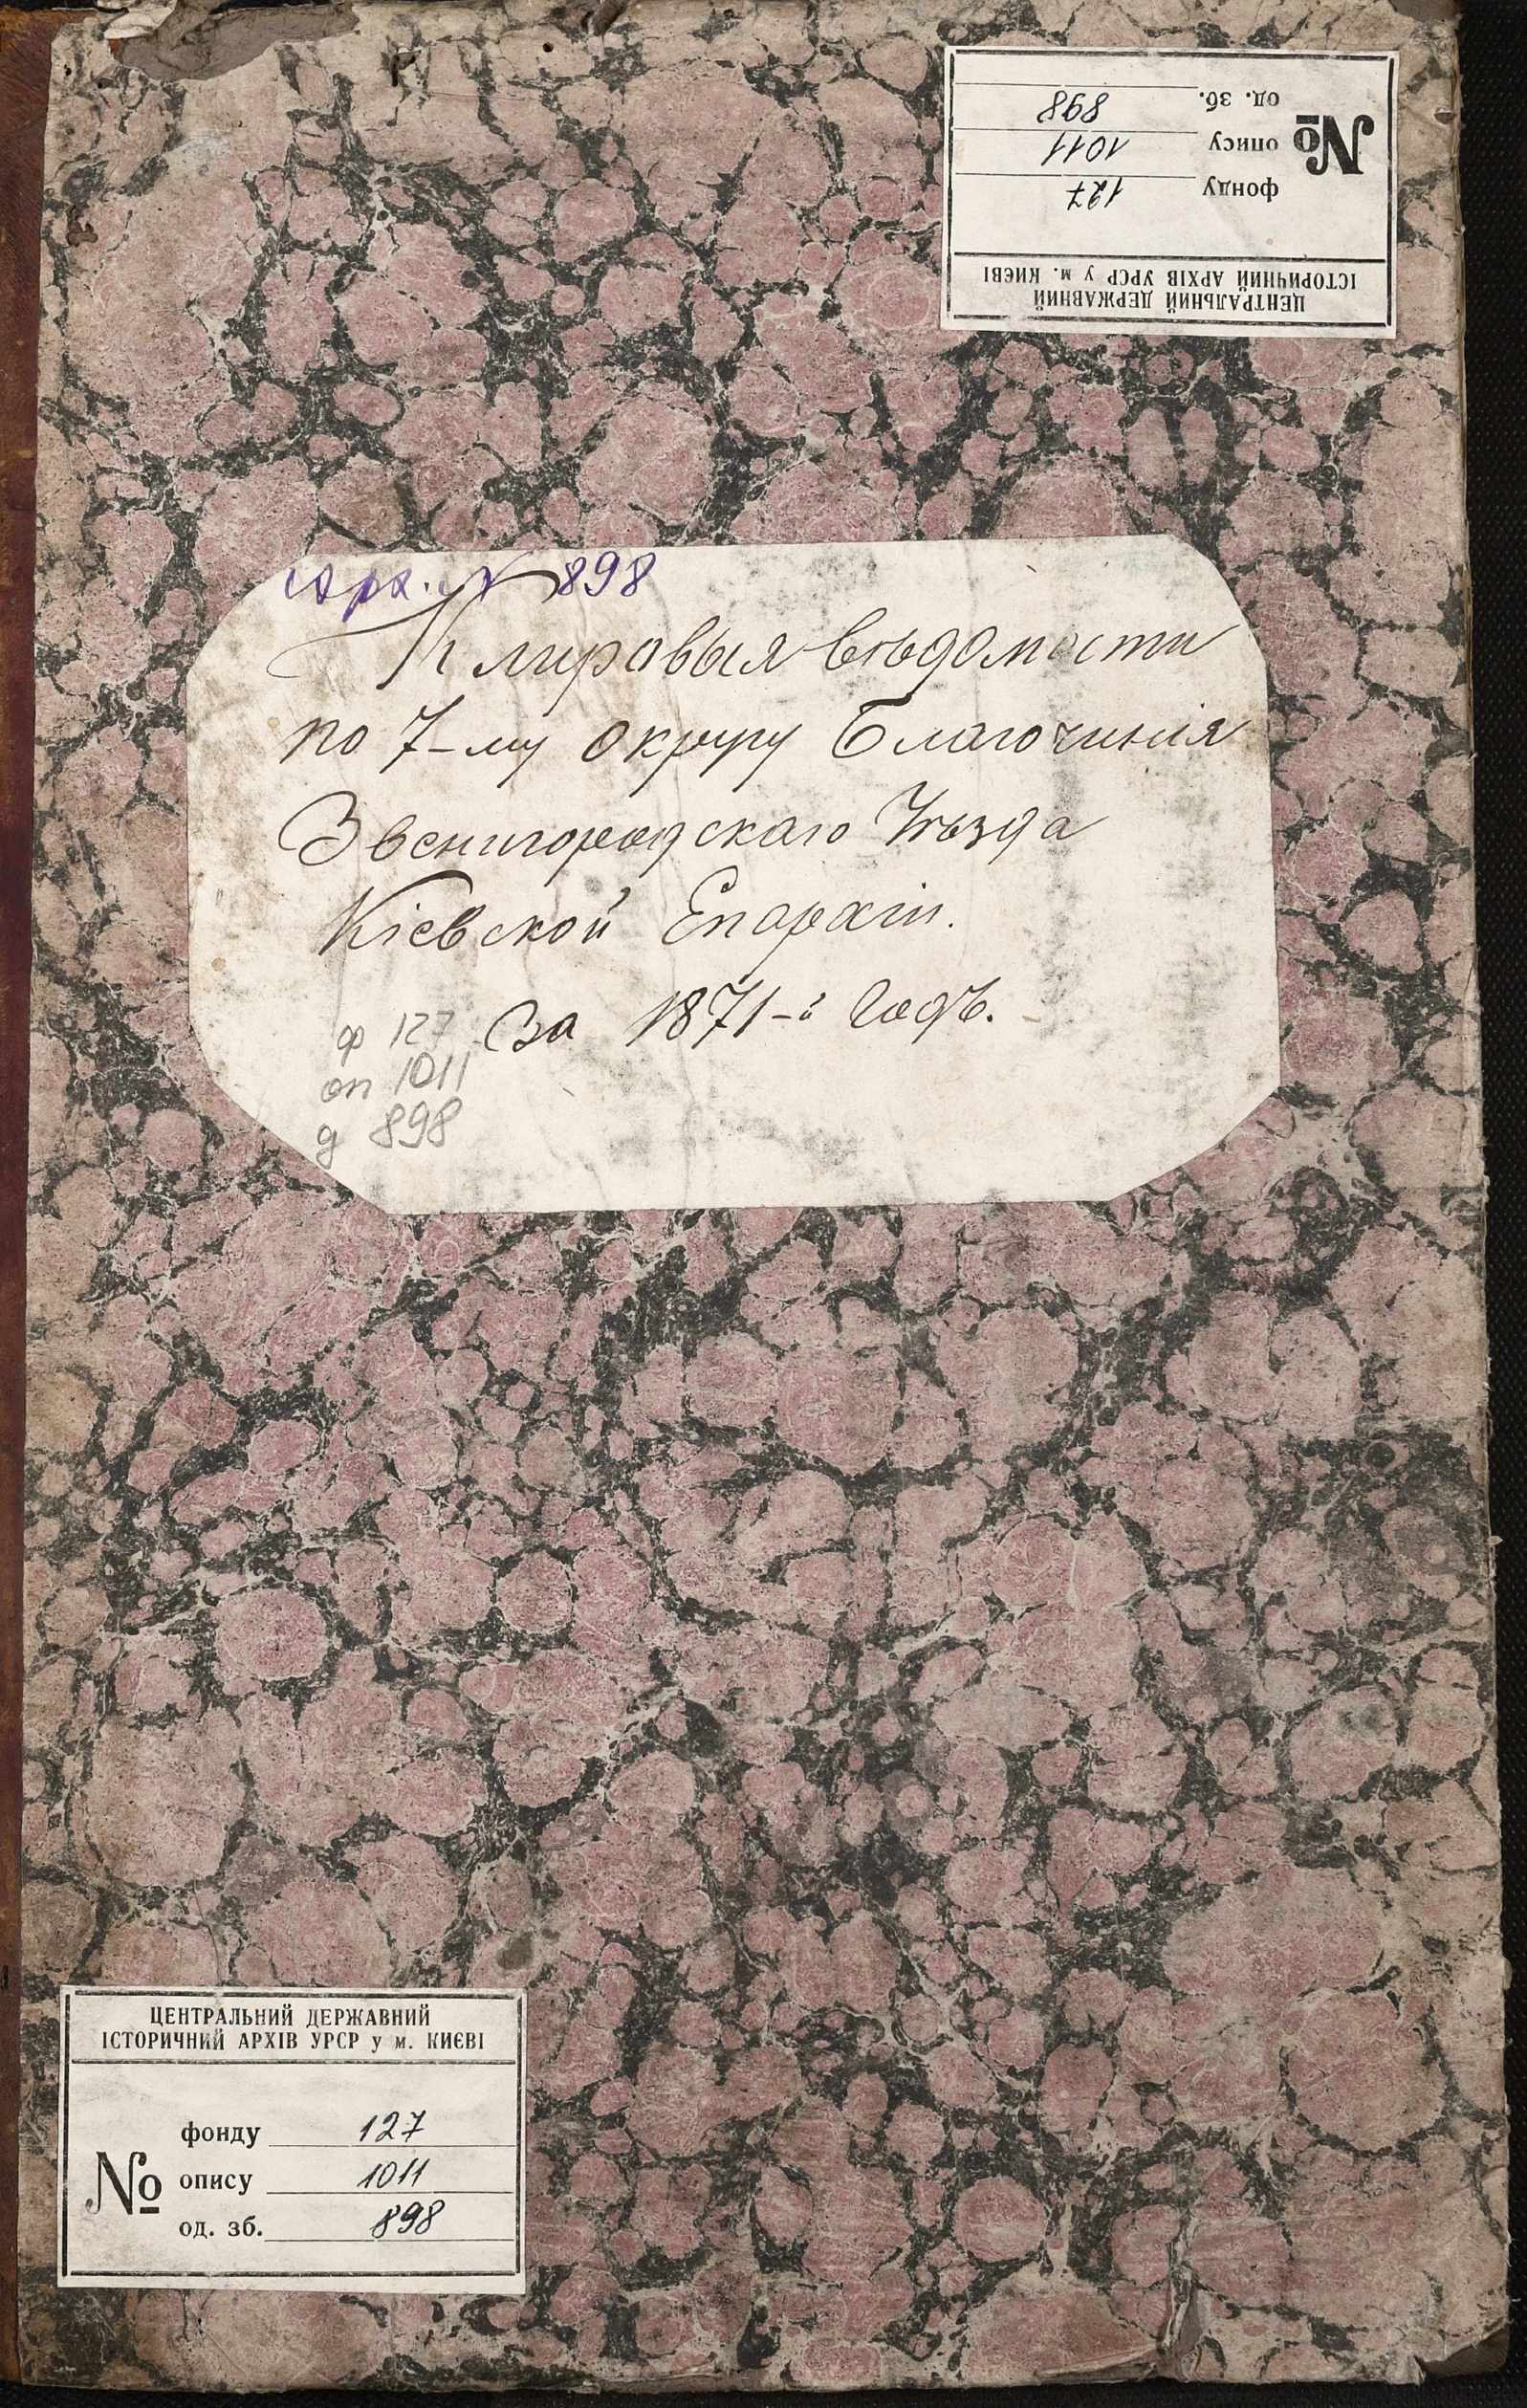 од. зб. 898
опису 1011
№
фонду 127
ЦЕНТРАЛЬНИЙ ДЕРЖАВНИЙ
ІСТОРИЧНИЙ АРХІВ УРСР у м. КИЄВІ
арх. № 898
Клировыя вѣдомости
по 7-му округу Благочинія
Звенигородскаго Уѣзда
Кіевской Епархіи.
За 1871-й Годъ.
ф 127
оп 1011
д 898
ЦЕНТРАЛЬНИЙ ДЕРЖАВНИЙ
ІСТОРИЧНИЙ АРХІВ УРСР у м. КИЄВІ
фонду 127
№
опису 1011
од. зб. 898